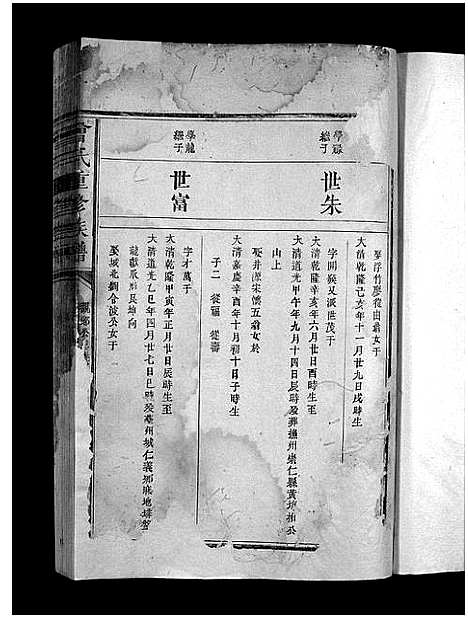 娶浮竹廖從由翁女于
大清乾隆己亥年十一月廿九日戌時生
學
繼子
世朱
字開候又派世茂于
大清乾隆辛亥年六月廿日酉時生至
大清道光甲午年九月十四日辰時歿葬撫州崇仁縣黃坤柏公
山上
娶井源宋懷五翁女於
大清嘉慶辛酉年十月初十日子時生
子二 從福 從壽
學龍
繼子
世富
字才萬于
大清乾隆甲寅年正月廿日辰時生至
大清道光乙巳年四月廿七日巳時歿
州城仁義鄉
地
龍獻
艮坤向
娶城北劉令波公女于
氏重修族譜